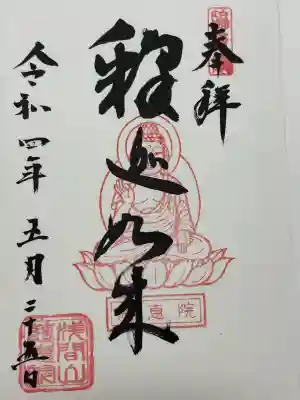 奉拝
釋迦如来
令和四年五月二十五日
浅間山